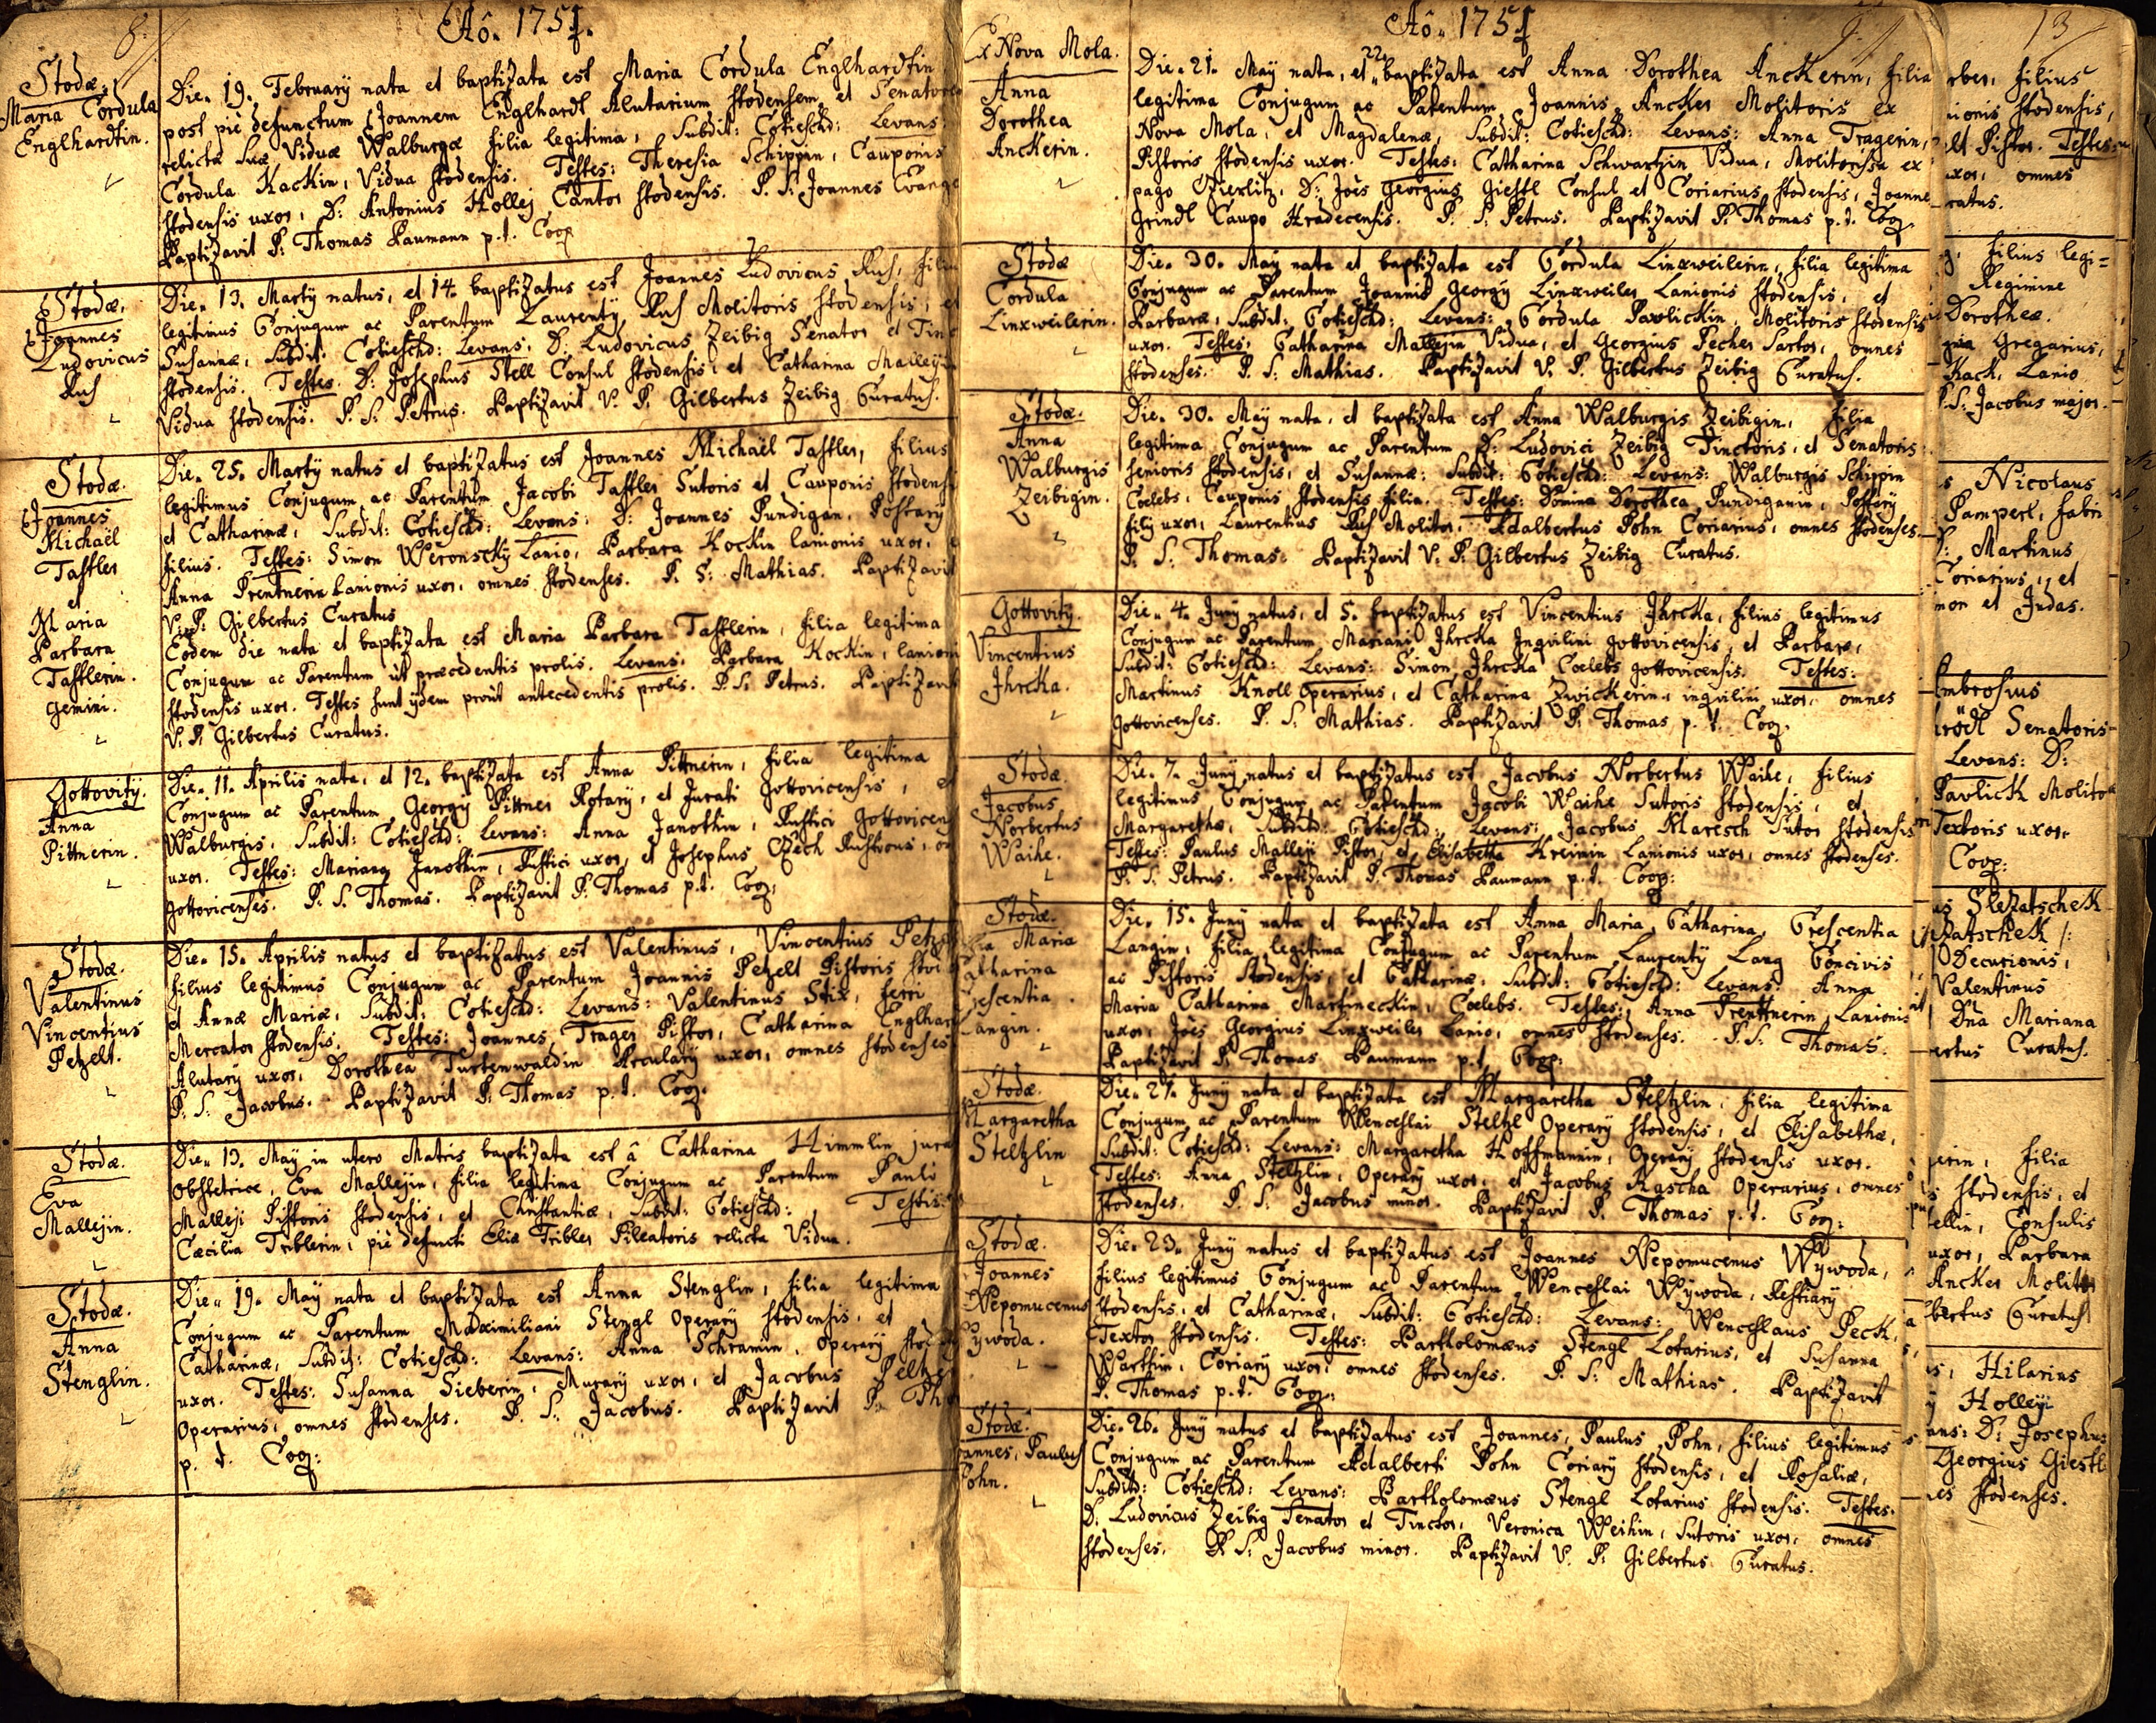 8.
Aô. 1751.
Stodæ.
Maria Cordula
Englhardtin.
Die. 19. Februarÿ nata et baptizata est Maria Cordula Englhardtin
post piè defunctum Joannem Englhardt Alutarium stodensem, et Senatorem
relictæ suæ Viduæ Walburgæ filia legitima, Subdit: Cotieschd: Levans:
Cordula Kackin, Vidua stodensis. Testes: Theresia Schippin, Cauponis
stodensis uxor, D: Antonius Holleÿ Cantor stodensis. P. S: Joannes Evange
Baptizavit P. Thomas Baumann p. t. Coop
Stodæ.
Joannes
Ludovicus
Rus
Die. 13. Martÿ natus, et 14. baptizatus est Joannes Ludovicus Rus, filiu
legitimus Conjugum ac Parentum Laurentÿ Rus Molitoris stodensis, et
Susannæ, Subdit: Cotieschd: Levans: D: Ludovicus Zeibig Senator et Tinc
stodensis. Testes. D: Josephus Stell Consul stodensis, et Catharina Malleÿin
Vidua stodensis. P. S. Petrus. Baptizavit V. P. Gilbertus Zeibig Curatus.
Stodæ.
Joannes
Michaël
Taffler
et
Maria
Barbara
Tafflerin.
gemini.
Die. 25. Martÿ natus et baptizatus est Joannes Michaël Taffler, filius
legitimus Conjugum ac Parentum Jacobi Taffler Sutoris et Cauponis stodensi
et Catharinæ, Subdit: Cotieschd: Levans: D: Joannes Pundigan, Postarÿ
filius. Testes: Simon Weronsckÿ Lanio, Barbara Kockin lanionis uxor, e
Anna Prentnerin Lanionis uxor, omnes stodenses. P. S: Mathias. Baptizavit
V: P: Gilbertus Curatus
Eodem die nata et baptizata est Maria Barbara Tafflerin, filia legitima
Conjugum ac Parentum ùt præcedentis prolis. Levans: Barbara Kockin, lanioni
stodensis uxor. Testes sunt ijdem proùt antecedentis prolis. P. S: Petrus. Baptizavit
V. P. Gilbertus Curatus.
Gottovitÿ.
Anna
Pittnerin.
Die. 11. Aprilis nata, et 12. baptizata est Anna Pittnerin, filia legitima
Conjugum ac Parentum Georgÿ Pittner Rotarÿ, et Jurati gottovicensis, et
Walburgis, Subdit: Cotieschd: Levans: Anna Janothin, Rustici gottovicens
uxor. Testes: Mariana Janothin, Rustici uxor, et Josephus Czech Rusticus, om
gottovicenses. P. S. Thomas. Baptizavit P. Thomas p. t. Coop.
Stodæ.
Valentinus
Vincentius
Petzelt.
Die. 15. Aprilis natus et baptizatus est Valentinus, Vincentius Petze
filius legitimus Conjugum ac Parentum Joannis Petzelt Pistoris stode
et Annæ Mariæ, Subdit: Cotieschd: Levans: Valentinus Stix, ferri
Mercator stodensis. Testes: Joannes Trager Pistor, Catharina Englhard
Alutarÿ uxor, Dorothea Turtenwaldin Arculary uxor, omnes stodenses
P. S: Jacobus. Baptizavit P. Thomas p. t. Coop.
Stodæ.
Eva
Mallejin.
Die. 13. Maÿ in utero Matris baptizata est â Catharina Himmlin jura
obstetrice, Eva Mallejin, filia legitima Conjugum ac Parentum Pauli
Malleji Pistoris stodensis, et Constantiæ, Subdit: Cotieschd: Testis:
Cæcilia Triblerin, piè defuncti Eliæ Tribler Pileatoris relicta Vidua.
Stodæ.
Anna
Stenglin.
Die. 19. Maÿ nata et baptizata est Anna Stenglin, filia legitima
Conjugum ac Parentum Maximiliani Stengl Operarÿ stodensis, et
Catharinæ, Subdit: Cotieschd: Levans: Anna Schramin, Operarÿ stod
uxor. Testes: Susanna Sieberin, Murarÿ uxor, et Jacobus Peltz
Operarius, omnes stodenses. P. S: Jacobus. Baptizavit P. Tho
p. t. Coop:
Aô. 1751
9.
Ex Nova Mola.
Anna
Dorothea
Anckerin.
Die. 21. Maÿ nata, et 22. baptizata est Anna Dorothea Anckerin, filia
legitima Conjugum ac Parentum Joannis Ancker Molitoris ex
Nova Mola, et Magdalenæ, Subdit: Cotieschd: Levans: Anna Tragerin,
Pistoris stodensis uxor. Testes: Catharina Schwartzin Vidua, Molitorissa ex
pago, D: Joês Georgius Giestl Consul et Coriarius stodensis, Joanne
Grindl Caupo Hradecensis. P. S. Petrus. Baptizavit P. Thomas p. t. Coop
Stodæ
Cordula
Linxweilerin.
Die. 30. Maÿ nata et baptizata est Cordula Linxweilerin, filia legitima
Conjugum ac Parentum Joannis Georgÿ Linxweiler Lanionis stodensis, et
Barbaræ, Subdit: Cotieschd: Levans: Cordula Pawlickin, Molitoris stodensis
uxor. Testes: Catharina Mallejin Vidua, et Georgius Pecher Sartor, omnes
stodenses. P. S: Mathias. Baptizavit V. P. Gilbertus Zeibig Curatus.
Stodæ.
Anna
Walburgis
Zeibigin.
Die. 30. Maÿ nata, et baptizata est Anna Walburgis Zeibigin, filia
legitima Conjugum ac Parentum D: Ludovici Zeibig Tinctoris, et Senatoris
senioris stodensis, et Susannæ: Subdit: Cotieschd: Levans: Walburgis Schippin
Coelebs, Cauponis stodensis filia. Testes: Domina Dorothea Pundiganin, Postarÿ
filÿ uxor, Laurentius Rus Molitor, Adalbertus Pohn Coriarius, omnes stodenses.
P. S: Thomas: Baptizavit V. P. Gilbertus Zeibig Curatus.
Gottovitÿ.
Vincentius
Jhrcka.
Die. 4. Junÿ natus, et 5. baptizatus est Vincentius Jhrcka, filius legitimus
Conjugum ac Parentum Mariani Jhrcka Inqvilini gottovicensis, et Barbaræ,
Subdit: Cotieschd: Levans: Simon Jhrcka Coelebs gottovicensis. Testes:
Martinus Knoll operarius, et Catharina Zwickerin, inqvilini uxor, omnes
gottovicenses. P. S: Mathias. Baptizavit P. Thomas p. t. Coop.
Stodæ.
Jacobus
Norbertus
Waihe.
Die. 7. Junÿ natus et baptizatus est Jacobus Norbertus Waihe, filius
legitimus Conjugum ac Parentum Jacobi Waihe Sutoris stodensis, et
Margarethæ, Subdit: Cotieschd: Levans: Jacobus Maresch Sutor stodensis
Testes: Paulus Malleji Pistor, et Elisabetha Kreinin Lanionis uxor, omnes stodenses.
P. S: Petrus. Baptizavit P. Thomas Baumann p. t. Coop:
Stodæ.
a Maria
Catharina
Crescentia
Langin.
Die. 15. Junÿ nata et baptizata est Anna Maria, Catharina, Crescentia
Langin, filia legitima Conjugum ac Parentum Laurentÿ Lang Concivis
ac Pistoris stodensis, et Catharinæ, Subdit: Cotieschd: Levans: Anna
Maria Catharina Martineckin, Coelebs. Testes: Anna Prenttnerin Lanionis
uxor, Joês Georgius Linxweiler Lanio, omnes stodenses. P. S: Thomas.
Baptizavit P. Thomas Baumann p. t. Coop:
Stodæ.
Margaretha
Steltzlin
Die. 21. Junÿ nata et baptizata est Margaretha Steltzlin, filia legitima
Conjugum ac Parentum Wenceslai Steltzl Operarÿ stodensis, et Elisabethæ,
Subdit: Cotieschd: Levans: Margaretha Hoffmannin, Operarÿ stodensis uxor.
Testes: Anna Steltzlin, Operarÿ uxor, et Jacobus Kascha Operarius, omnes
stodenses. P. S: Jacobus minor. Baptizavit P. Thomas p. t. Coop:
Stodæ.
Joannes
Nepomucenus
Wÿwoda.
Die. 23. Junÿ natus et baptizatus est Joannes Nepomucenus Wÿwoda,
filius legitimus Conjugum ac Parentum Wenceslai Wÿwoda, Restiarÿ
stodensis, et Catharinæ, Subdit: Cotieschd: Levans: Wenceslaus Peck,
Textor stodensis. Testes: Bartholomæus Stengl Lotarius, et Susanna
Warthin, Coriarÿ uxor, omnes stodenses. P. S: Mathias. Baptizavit
P. Thomas p. t. Coop:
Stodæ.
annes, Paulus
Pohn.
Die. 26. Junÿ natus et baptizatus est Joannes, Paulus Pohn, filius legitimus
Conjugum ac Parentum Adalberti Pohn Coriarÿ stodensis, et Rosaliæ,
Subditd: Cotieschd: Levans: Bartholomæus Stengl Lotarius stodensis. Testes.
D: Ludovicus Zeibig Senator et Tinctor, Veronica Weihin, Sutoris uxor, omnes
stodenses. P. S: Jacobus minor. Baptizavit V. P. Gilbertus Curatus.
13
rber, filius
ionis stodensis,
elt Pistor. Testes:
uxor, omnes
ratus.
filius legi=
Regimine
Dorotheæ.
Gregarius,
Kack, Lanio
P. S: Jacobus major.
s Nicolaus
Pamperl, fabri
D: Martinus
Coriarius, et
mon et Judas.
Ambrosius
srödl Senatoris
Levans: D:
Pavlick Molito
Textoris uxor,
Coop:
us Slezatscheck
ezatscheck /:
Decurionis,
Valentinus
Dña Mariana
ertus Curatus.
perin, filia
s stodensis, et
ellin, Consulis
uxor, Barbara
Ancker Molitor
lbertus Curatus
us, Hilarius
ÿ Holleÿ
ans: D: Josephus
Georgius Giestl
nes stodenses.